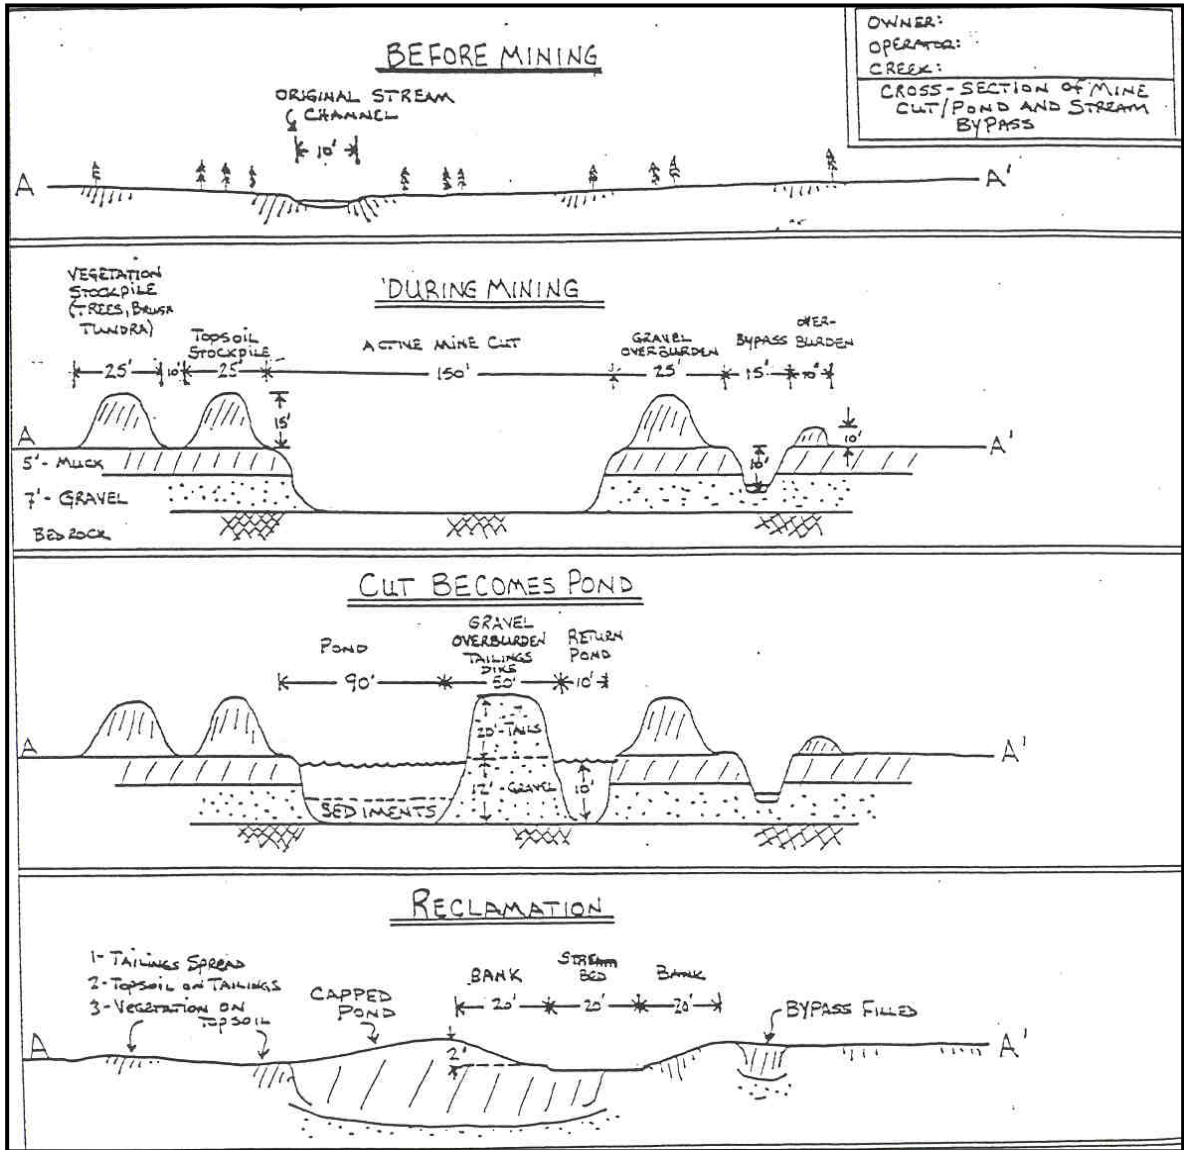 OWNER:
OPERATOR:
CREEK:
CROSS-SECTION OF MINE
CUT/POND AND STREAM
BYPASS
BEFORE MINING
ORIGINAL STREAM
CHANNEL
10'
A
A'
DURING MINING
VEGETATION
STOCKPILE
(TREES, BRUSH
TUNDRA)
TOPSOIL
STOCKPILE
ACTIVE MINE CUT
GRAVEL
OVERBURDEN
BYPASS
OVER-
BURDEN
25'
10'
25'
150'
25'
15'
10'
15'
10'
10'
A
A'
5'- MUCK
7'- GRAVEL
BEDROCK
CUT BECOMES POND
POND
GRAVEL
OVERBURDEN
TAILINGS
DIKE
RETURN
POND
90'
50'
10'
20'-TAILS
12'-GRAVEL
10'
SEDIMENTS
A
A'
RECLAMATION
1- TAILINGS SPREAD
2- TOPSOIL ON TAILINGS
3- VEGETATION ON
TOPSOIL
CAPPED
POND
BANK
STREAM
BED
BANK
20'
20'
20'
2'
BYPASS FILLED
A
A'